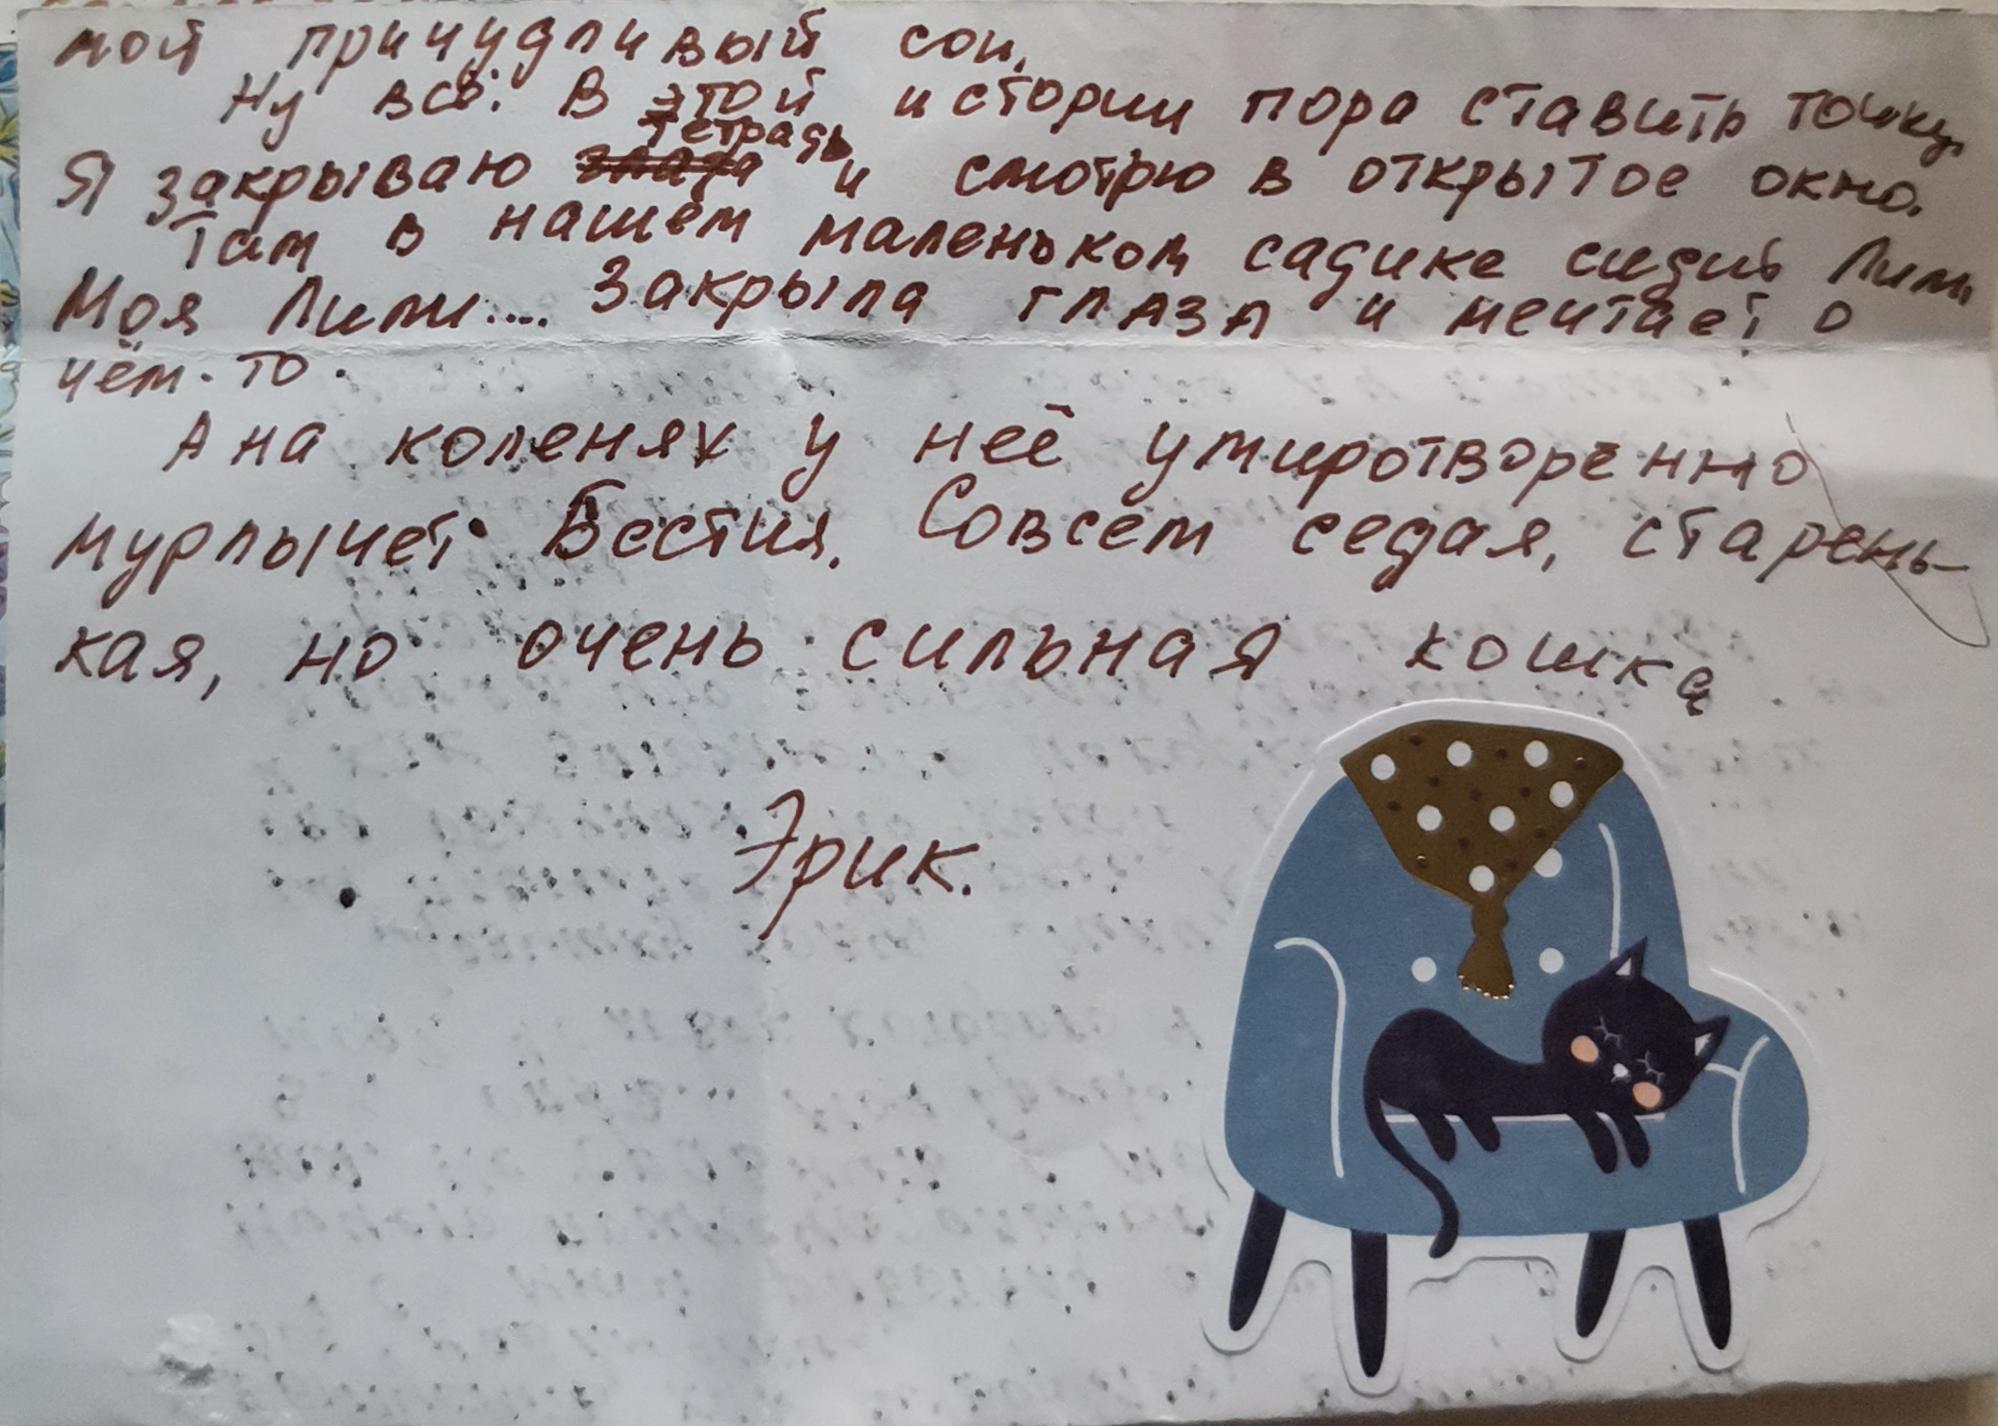 мой причудливый сон.
Ну всё. В этой истории пора ставить точку.
Я закрываю тетрадь и смотрю в открытое окно.
Там в нашем маленьком садике сидит Лили.
Моя Лили.... Закрыла глаза и мечтает о
чём-то.
А на коленях у неё умиротворённо
мурлычет Бестия. Совсем седая, старень-
кая, но очень сильная кошка
Эрик.